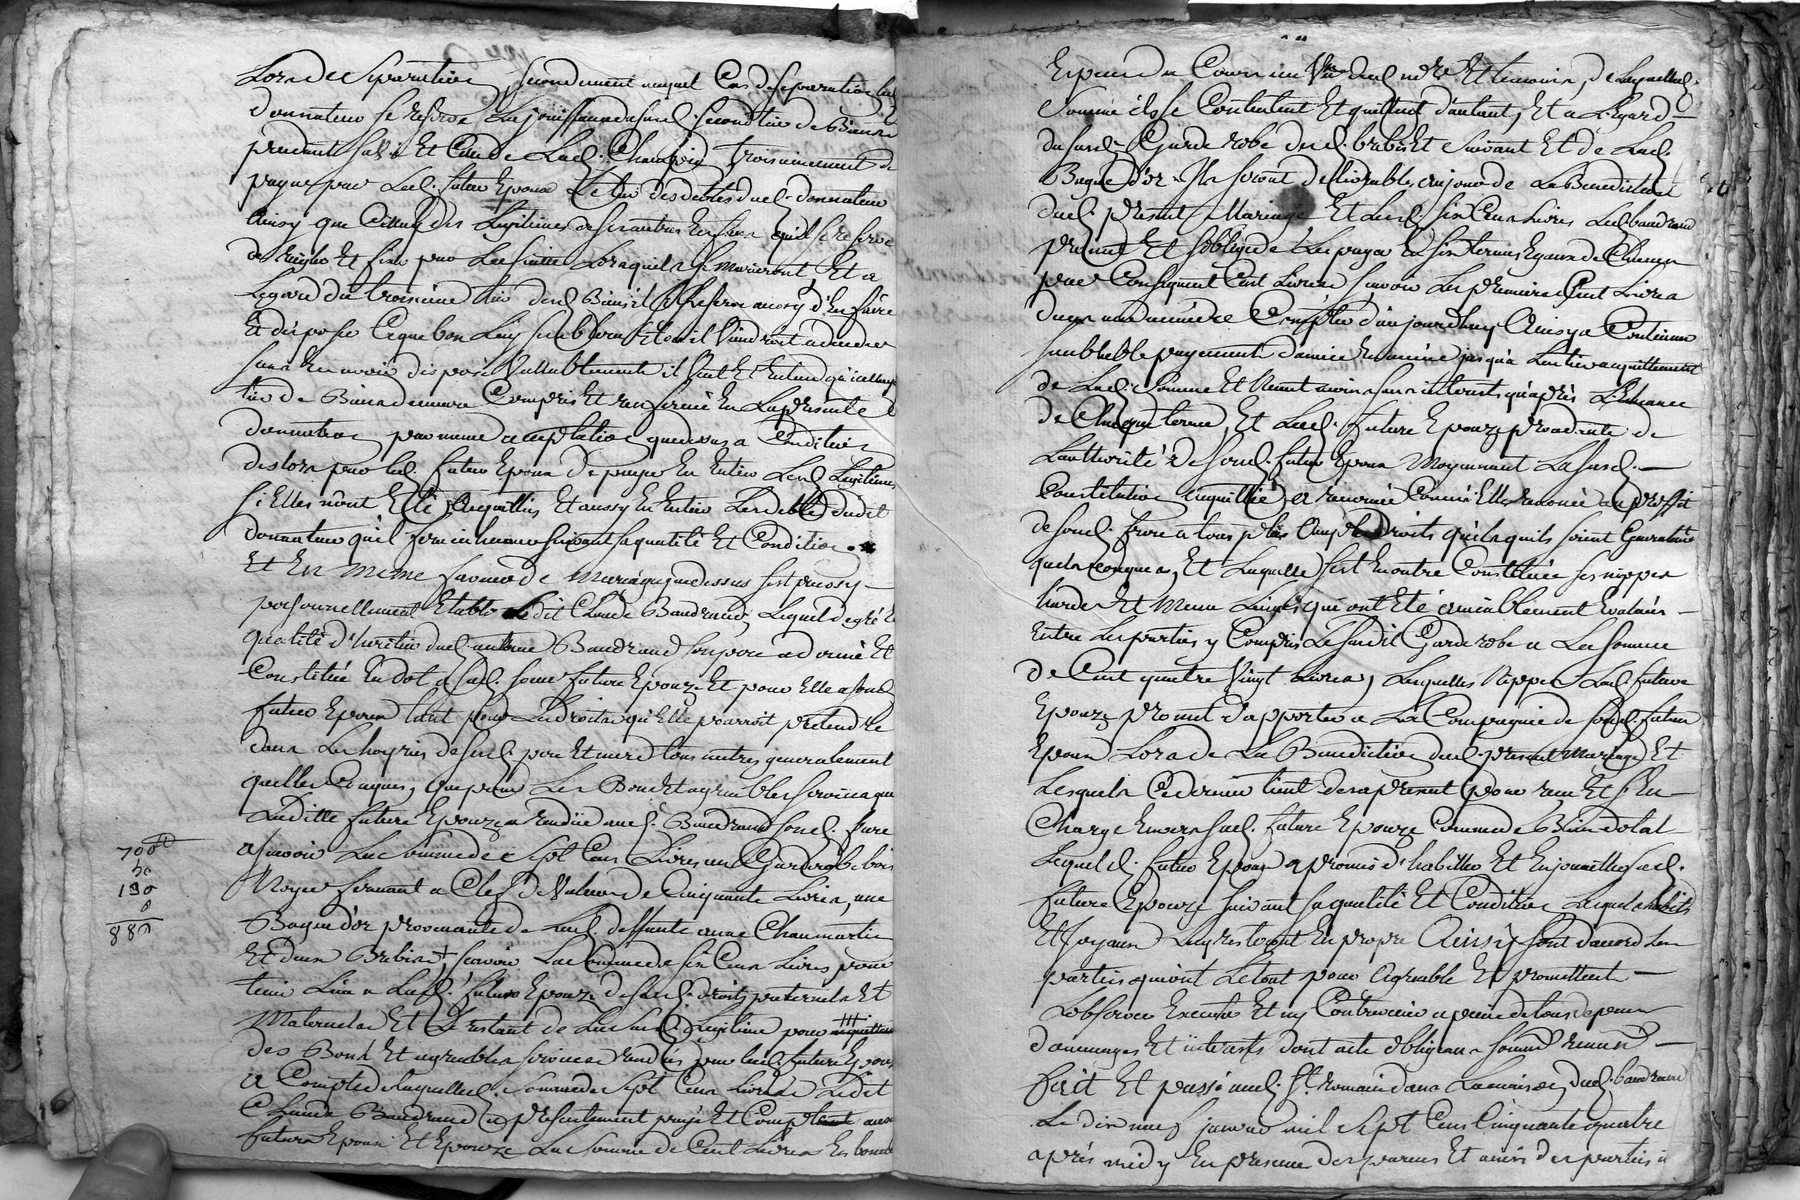 Lors de Separation secondement auquel Cas de separation led.
donnateur se reserve La jouissance du surd. second tier de Biens
pendant sa vie Et Celle de Lad. troisiemement de
payer par Led. futur Epoux Le tier des debtes dud. donnateur
Ainsy que Celluy des Legitimes de ses autres Enfans quil se reserve
de Regler Et fixer par La suitte Lorsquils se Marieront Et a
Legard du troisieme tier desd. Biens il se Reserve aussy d'En faire
Et disposer Ce que bon Luy semblera Et ou il Viendroit a deceder
sans En avoir disposé Vallablement il Veut Et Entend qu'icelluy
tier de Biens demeure Compris Et renfermé En La presente
donnation par meme acceptation que dessus a Condition
deslors par led. futur Epoux De payer En Entier Lesd. Legitimes
si Elles n'ont Eté acquittées Et aussy En Entier Les debtes dudit
donnateur qu'il sera inhumer suivant sa qualité Et Condition
Et En meme faveur de Mariage que dessus s'est aussy
personnellement Etably Ledit Claude Baudrand, Lequel de gré
qualité d'heritier dud. Baudrand son pere a donné Et
Constitué En dot a lad. soeur future Epouze Et pour Elle a sond.
futur Epoux tant pour Les droits qu'Elle pourroit pretendre
dans Les hoyries de sesd. pere Et mere tous autres generalement
quelles Conques, que pour Les Bons Et agreables services que
Laditte future Epouze a rendüe aud. Baudrand sond. frere
a sçavoir La somme de sept Cens Livres un Garderobe bois
Noyer fermant a Clef de Valeur de Cinquante Livres, une
Bague d'or provenante de Lad. deffunte anne Chaumartin
Et deux Brebis, sçavoir La somme de six Cens Livres pour
tenir Lieu a Lad. future Epouze de sesd. droits paternels Et
Maternels Et Le restant de La susd. Legitime pour
des Bons Et agreables services rendus par lad. future Epouze
a Compte de laquelle d. somme de sept Cens Livres Ledit
Claude Baudrand a presentement payé Et Compté aux
futurs Epoux Et Epouze La somme de Cent Livres En bonnes
700
50
130
8
880
Especes du Cours au Vu dud. nore. Et temoins, de laquelled.
Somme ils se Contentent Et quittent d'autant, Et a L'Egard
du susd. Garde robe desd. brebis Et suivant Et de Lad.
Bague d'or Ils seront delivrables au jour de La Benediction
dud. present Mariage Et Lesd. six Cens Livres Led. baudrand
promet Et s'oblige de Les payer En six termes Egaux de Chacun
par Consequent Cent Livres sçavoir Les premieres Cent Livres
d'un an d'aujourdhuy Ainsy a Continuer
semblable payement d'année En année jusqu'à L'entier acquittement
de Lad. somme Et Neant moins sans interests qu'aprés L'Echeance
de Chaque terme, Et Lad. future Epouze procedante de
L'autthorité de sond. futur Epoux Moyennant La susd.
Constitution a quitté et renoncé Comme Elle renonce au proffit
de sond. frere a tous plus amples Droits quels qu'ils soient Generalement
quels Conques, Et Laquelle s'est En outre Constituée ses nippes
hardes Et Menu Linges qui ont Eté amiablement Evalués
Entre Les parties y Compris Le susdit Garde robe a La somme
de Cent quatre Vingt Livres, Lesquelles Nippes Lad. future
Epouze promet d'apporter a La Compagnie de sond. futur
Epoux Lors de La Benediction dud. present Mariage Et
Lesquels Ce dernier tient des a present pour reçu Et s'En
Charge Envers sad. future Epouze Comme de Bien dotal
Lequel d. futur Epoux a promis d'habiller Et Enjoailler sad.
future Epouze suivant sa qualité Et Condition Lesquels habits
Et Joyaux Luy resteront En propre Ainsy sont d'accord Les
parties qui ont Le tout pour agreable Et promettent
L'observer Executer Et n'y Contrevenir a peine de tous depens
dommages Et interests dont acte obligeans soumis renonc.
fait Et passé aud. St. romain dans La maison dud. baudrand
Le dix neuf janvier mil sept Cens Cinquante quatre
aprés midy En presence des parens Et amis des parties